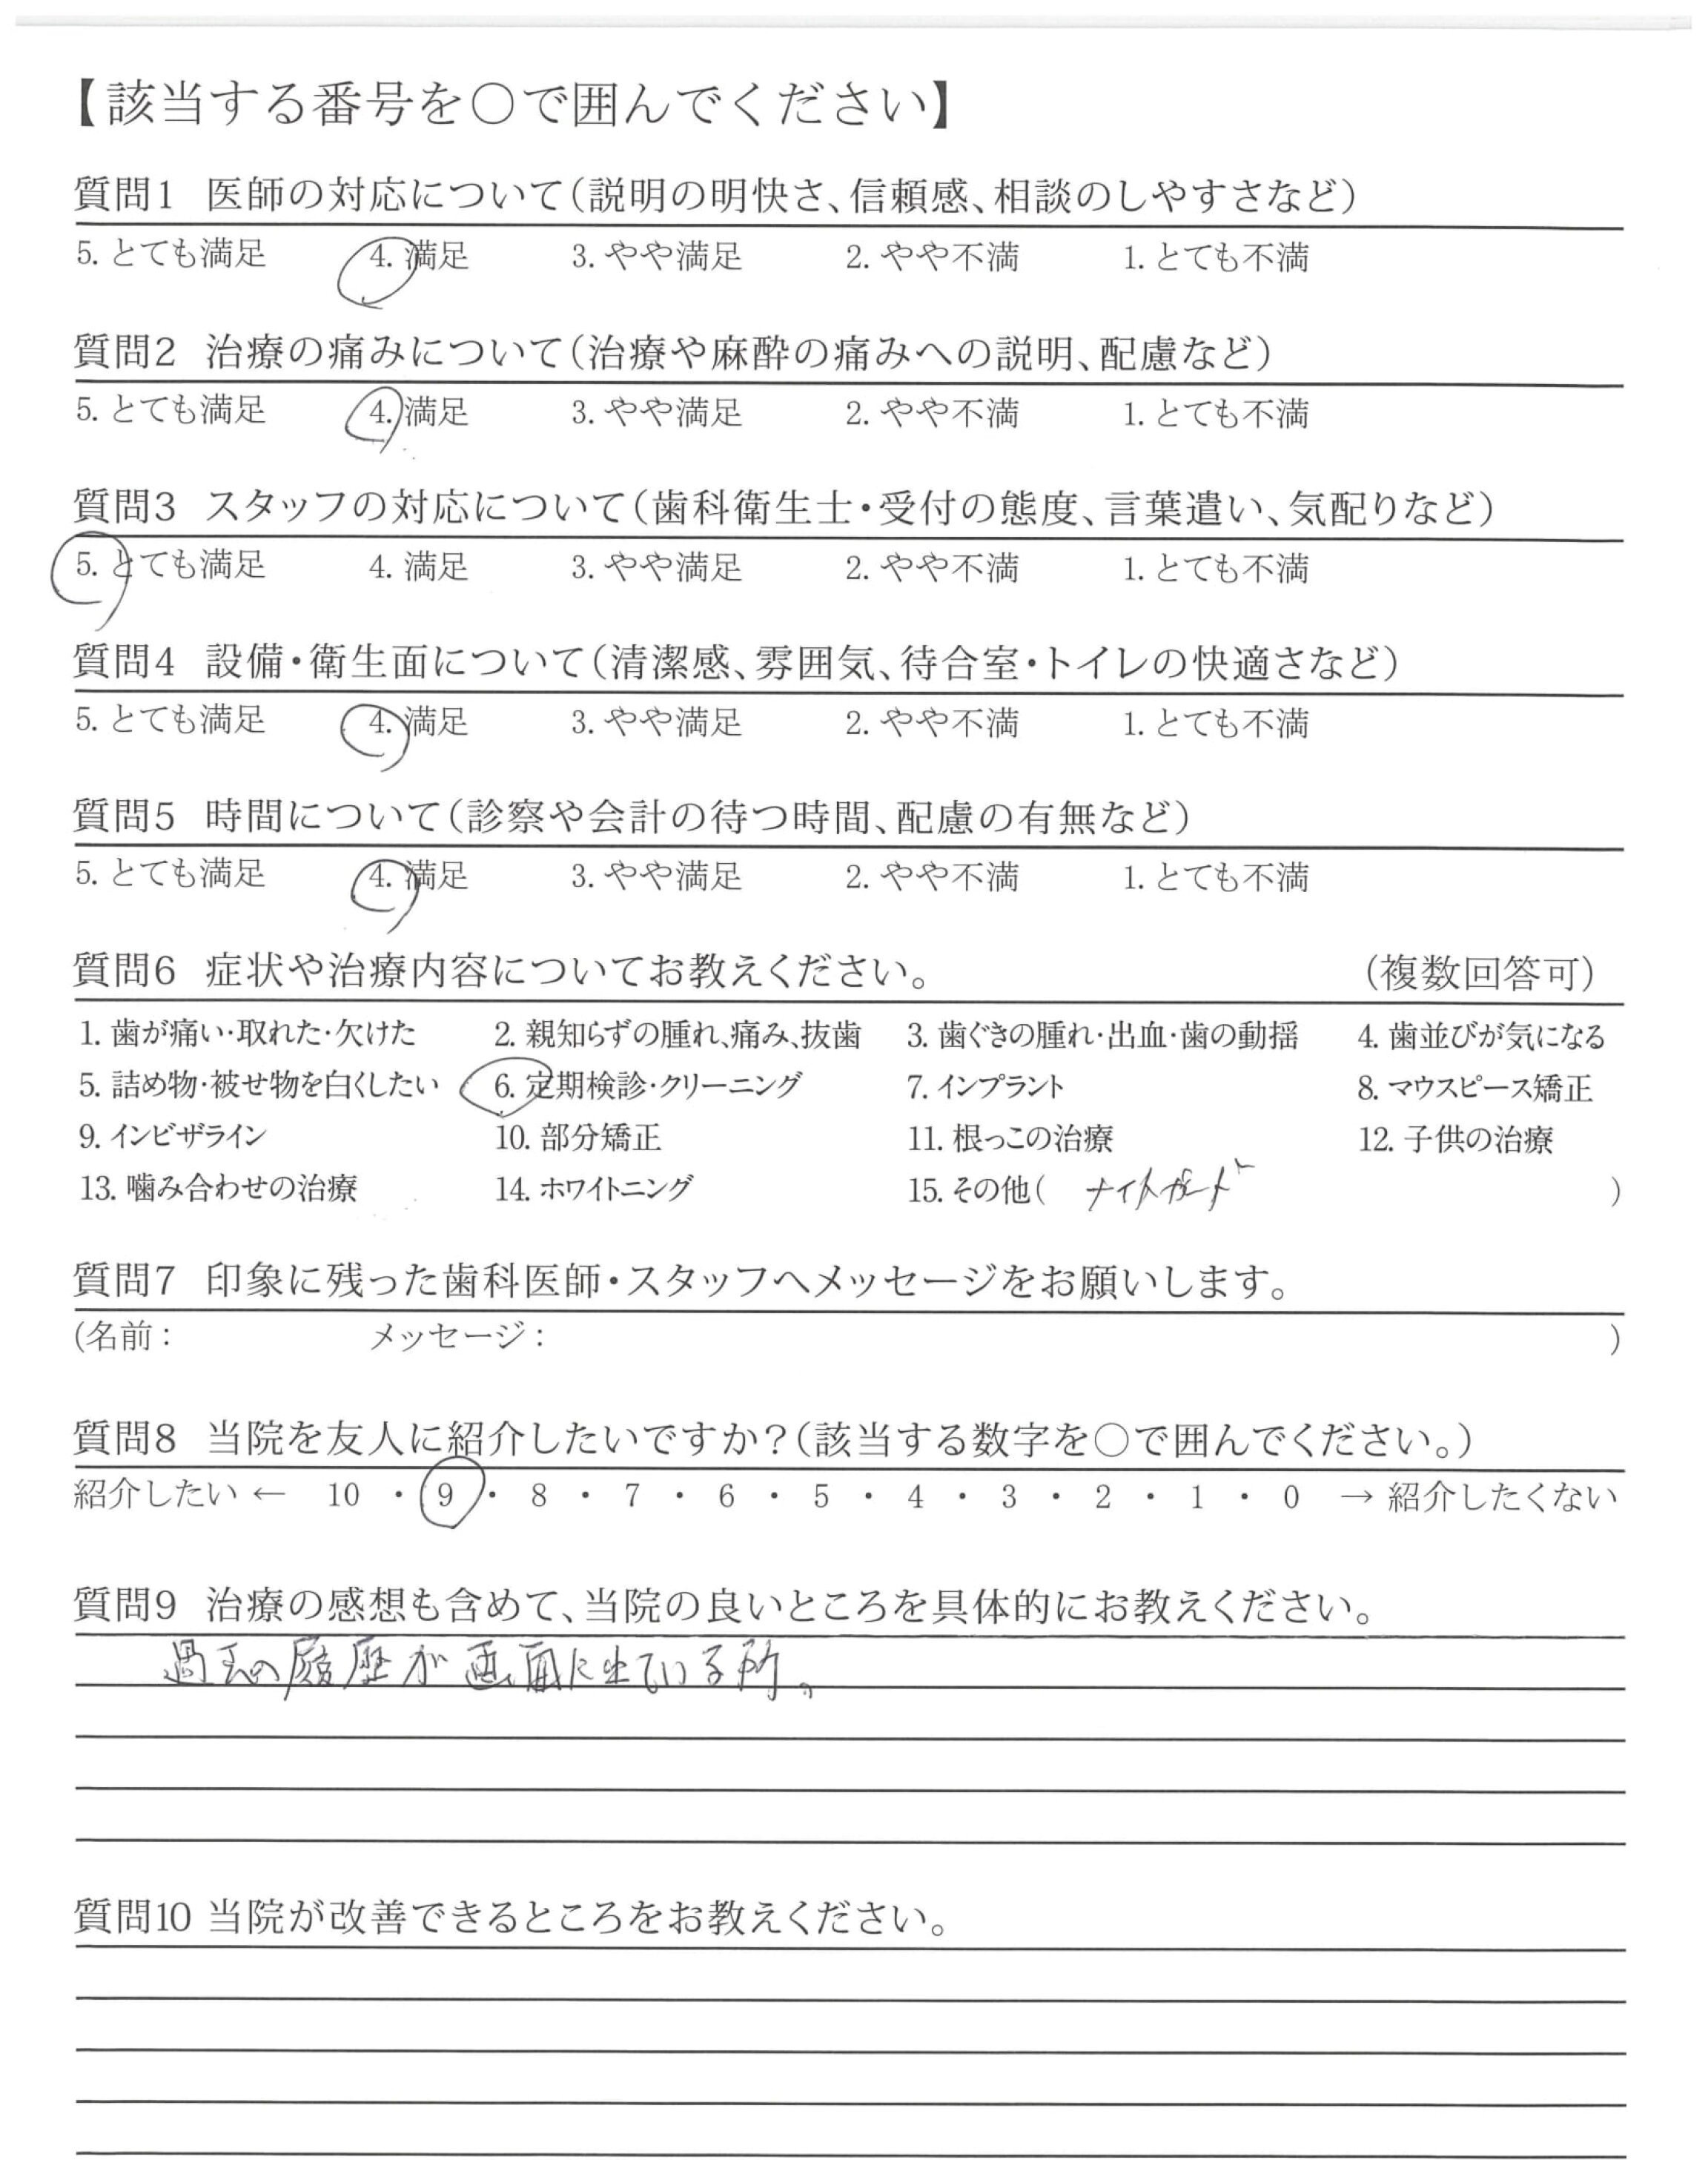 【該当する番号を○で囲んでください】
質問1 医師の対応について(説明の明快さ、信頼感、相談のしやすさなど)
5. とても満足 4. 満足 3. やや満足 2. やや不満 1. とても不満
質問2 治療の痛みについて(治療や麻酔の痛みへの説明、配慮など)
5. とても満足 4. 満足 3. やや満足 2. やや不満 1. とても不満
質問3 スタッフの対応について(歯科衛生士・受付の態度、言葉遣い、気配りなど)
5. とても満足 4. 満足 3. やや満足 2. やや不満 1. とても不満
質問4 設備・衛生面について(清潔感、雰囲気、待合室・トイレの快適さなど)
5. とても満足 4. 満足 3. やや満足 2. やや不満 1. とても不満
質問5 時間について(診察や会計の待つ時間、配慮の有無など)
5. とても満足 4. 満足 3. やや満足 2. やや不満 1. とても不満
質問6 症状や治療内容についてお教えください。 (複数回答可)
1. 歯が痛い・取れた・欠けた 2. 親知らずの腫れ、痛み、抜歯 3. 歯ぐきの腫れ・出血・歯の動揺 4. 歯並びが気になる
5. 詰め物・被せ物を白くしたい 6. 定期検診・クリーニング 7. インプラント 8. マウスピース矯正
9. インビザライン 10. 部分矯正 11. 根っこの治療 12. 子供の治療
13. 噛み合わせの治療 14. ホワイトニング 15. その他( ナイトガード )
質問7 印象に残った歯科医師・スタッフへメッセージをお願いします。
(名前: メッセージ: )
質問8 当院を友人に紹介したいですか?(該当する数字を○で囲んでください。)
紹介したい ← 10 ・ 9 ・ 8 ・ 7 ・ 6 ・ 5 ・ 4 ・ 3 ・ 2 ・ 1 ・ 0 → 紹介したくない
質問9 治療の感想も含めて、当院の良いところを具体的にお教えください。
過去の履歴が画面に出ている所。
質問10 当院が改善できるところをお教えください。